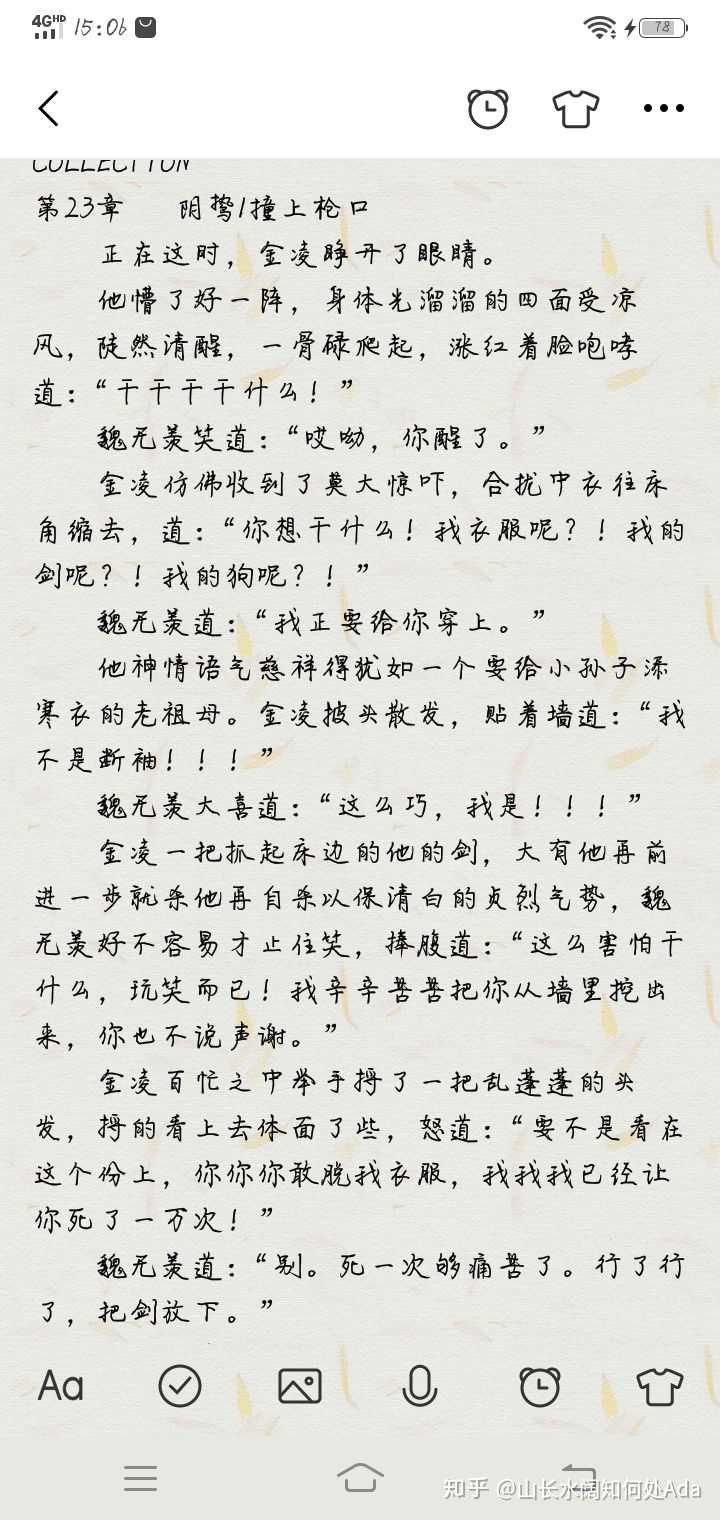 4G HD 15:06 78
COLLECTION
第23章 阴鸷/撞上枪口
正在这时，金凌睁开了眼睛。
他懵了好一阵，身体光溜溜的四面受凉
风，陡然清醒，一骨碌爬起，涨红着脸咆哮
道：“干干干干什么！”
魏无羡笑道：“哎呦，你醒了。”
金凌仿佛收到了莫大惊吓，合拢中衣往床
角缩去，道：“你想干什么！我衣服呢？！我的
剑呢？！我的狗呢？！”
魏无羡道：“我正要给你穿上。”
他神情语气慈祥得犹如一个要给小孙子添
寒衣的老祖母。金凌披头散发，贴着墙道：“我
不是断袖！！！”
魏无羡大喜道：“这么巧，我是！！！”
金凌一把抓起床边的他的剑，大有他再前
进一步就杀他再自杀以保清白的贞烈气势，魏
无羡好不容易才止住笑，捧腹道：“这么害怕干
什么，玩笑而已！我辛辛苦苦把你从墙里挖出
来，你也不说声谢。”
金凌百忙之中举手捋了一把乱蓬蓬的头
发，捋的看上去体面了些，怒道：“要不是看在
这个份上，你你你敢脱我衣服，我我我已经让
你死了一万次！”
魏无羡道：“别。死一次够痛苦了。行了行
了，把剑放下。”
Aa
知乎 @山长水阔知何处Ada